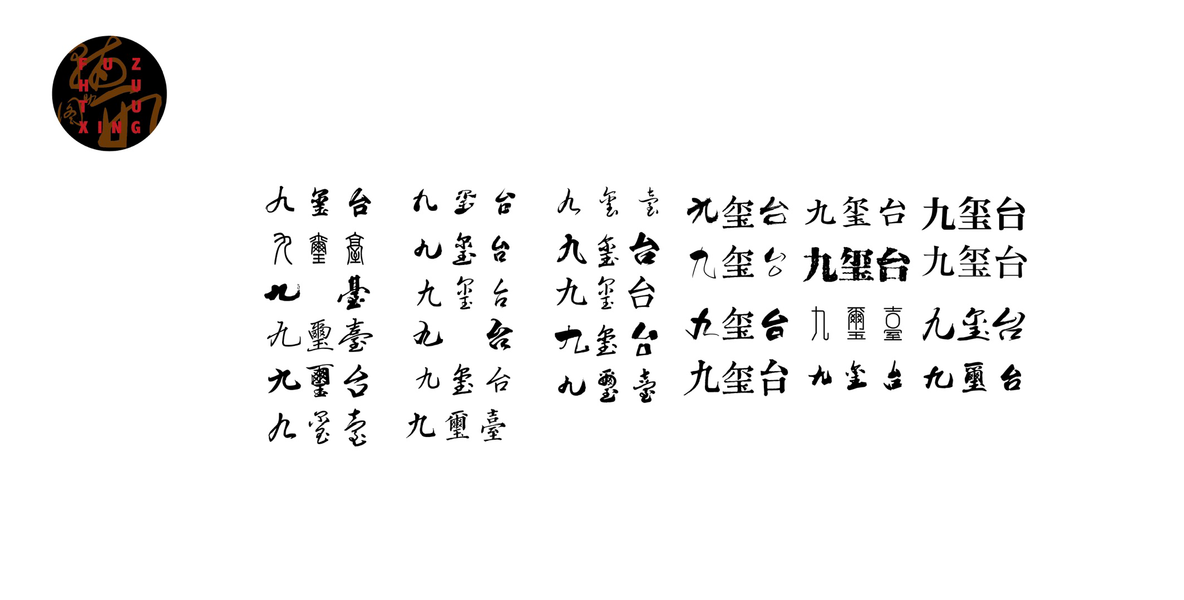 F U Z
H U
T U
X I N G
图
九 玺 台
九 璽 臺
九 臺
九 璽 臺
九 璽 台
九 玺 臺
九 玺 台
九 玺 台
九 玺 台
九 台
九 玺 台
九 璽 臺
九 玺 臺
九 玺 台
九 玺 台
九 玺 台
九 璽 臺
九玺台
九玺台
九玺台
九玺台
九玺台
九玺台
九 璽 臺
九 玺 台
九玺台
九玺台
九玺台
九 璽 台